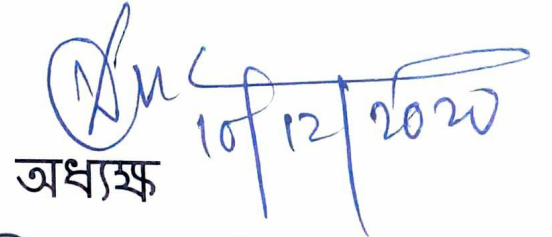 10/12/2020
অধ্যক্ষ